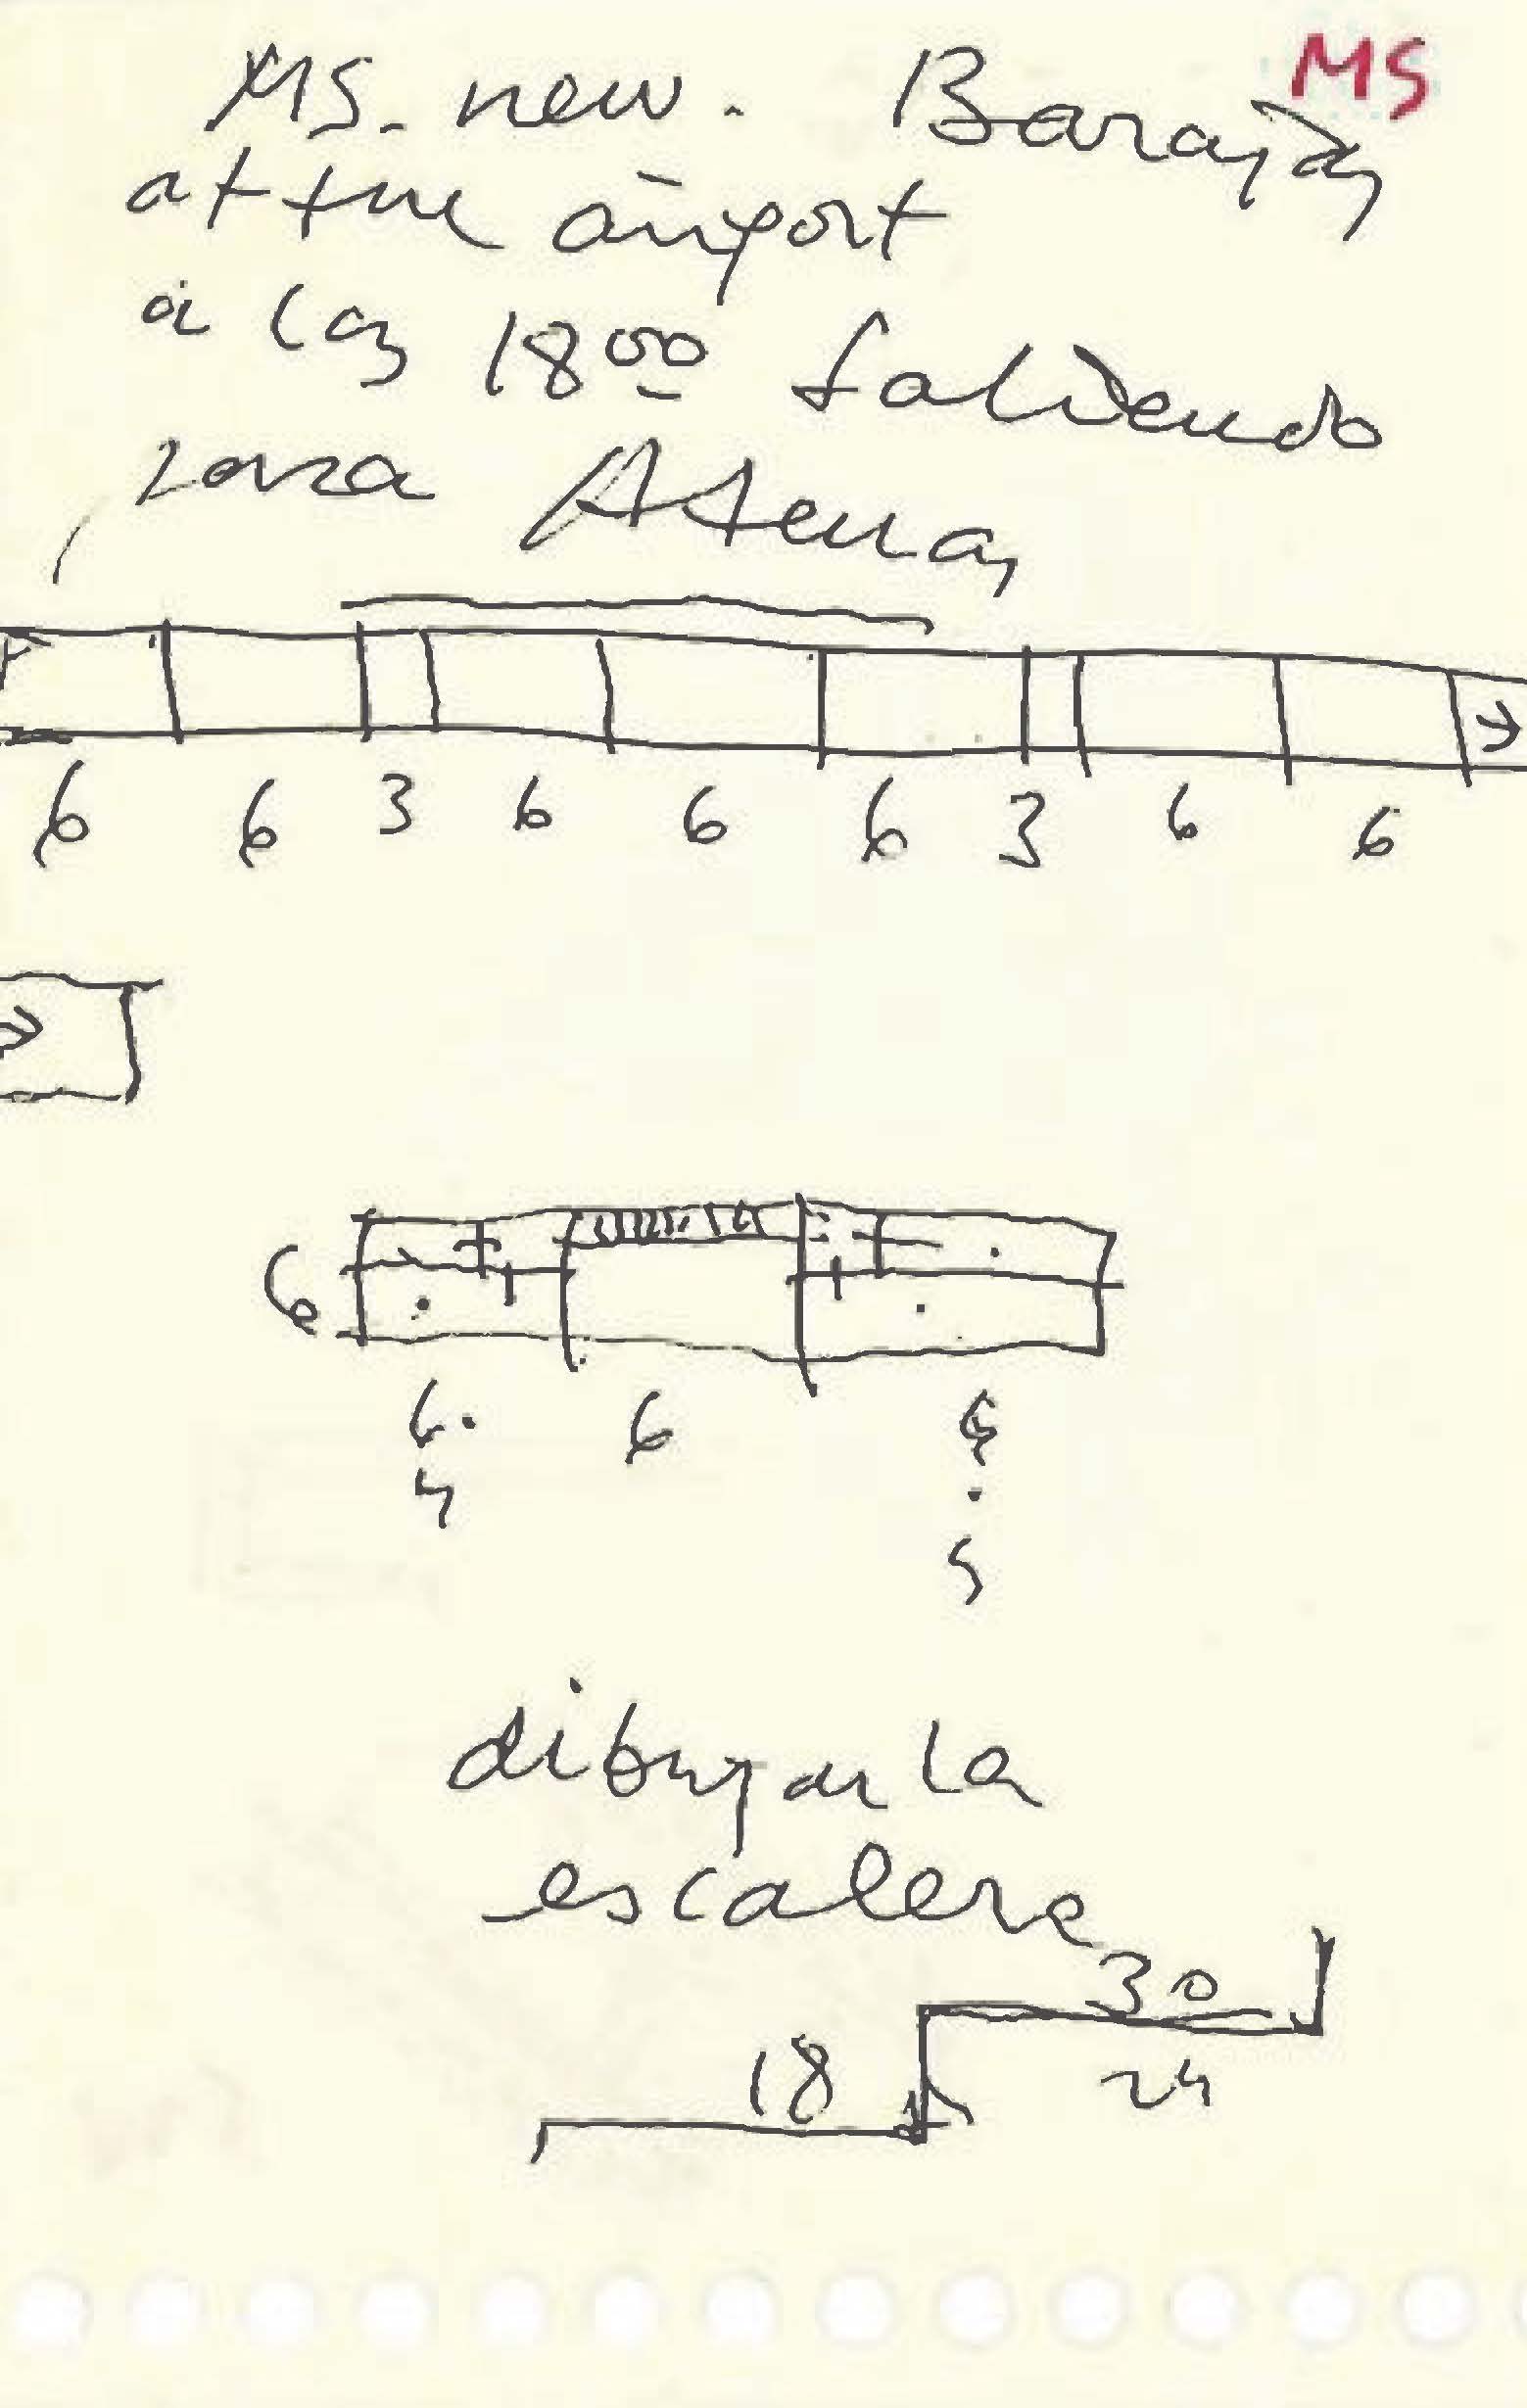 MS
MS. new. Barajas
at the airport
a las 18 00 saliendo
para Atenas
6 6 3 6 6 6 3 6 6
6
6. 6 6
4 . 5
dibujar la
escalera
30
18 24